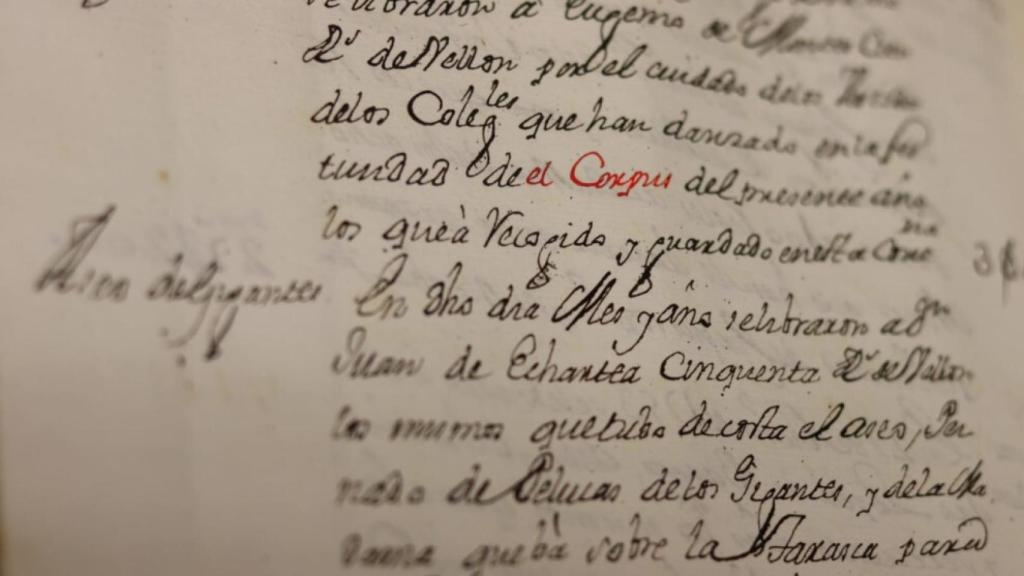 se libraron à Eugenio de
Rˢ de Vellon por el cuidado delos
delos Colegˡᵉˢ que han danzado en la fes
tundad de el Corpus del presente año
los que à Recogido y guardado en esta
Aseo del gigantes
En dho dia Mes y año se libraron a dⁿ
Juan de Echartea Cinquenta Rˢ de Vellon
los mismos que tubo de costa el aseo, Pei
nado de Pelucas de los Gigantes, y de la Ma
dama que bà sobre la Taxasca para